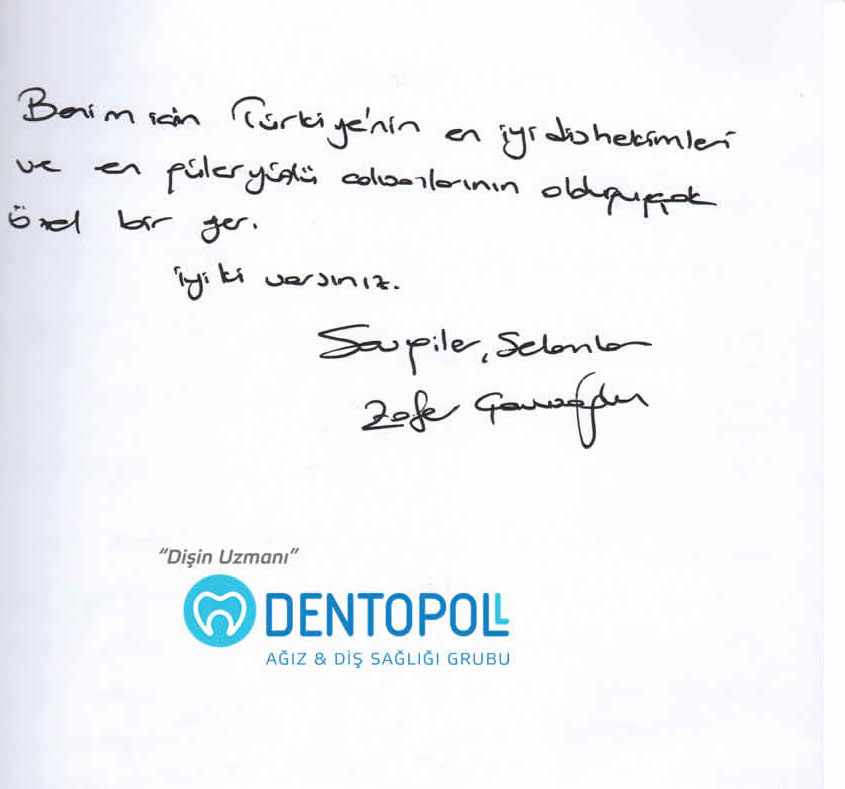 Benim için Türkiye'nin en iyi diş hekimleri
ve en güleryüzlü çalışanlarının olduğu çok
özel bir yer.
İyi ki varsınız.
Sevgiler, Selamlar
Zafer
"Dişin Uzmanı"
DENTOPOLL
AĞIZ & DİŞ SAĞLIĞI GRUBU